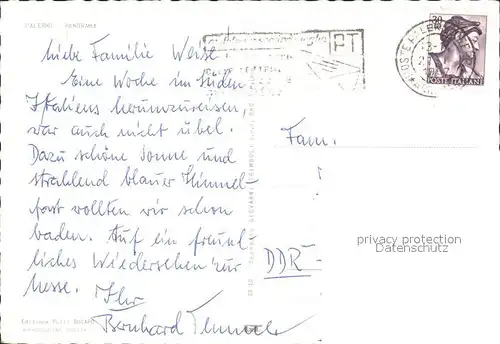 PALERMO - PANORAMA
Liebe Familie Weise!
Eine Woche im Süden
Italiens herumzureisen,
war auch nicht übel.
Dazu schöne Sonne und
strahlend blauer Himmel-
fast wollten wir schon
baden. Auf ein freund
liches Wiedersehen zur
Messe. Ihr
Bernhard
Fam.
DDR
30
POSTE ITALIANE
PT
privacy protection
Datenschutz